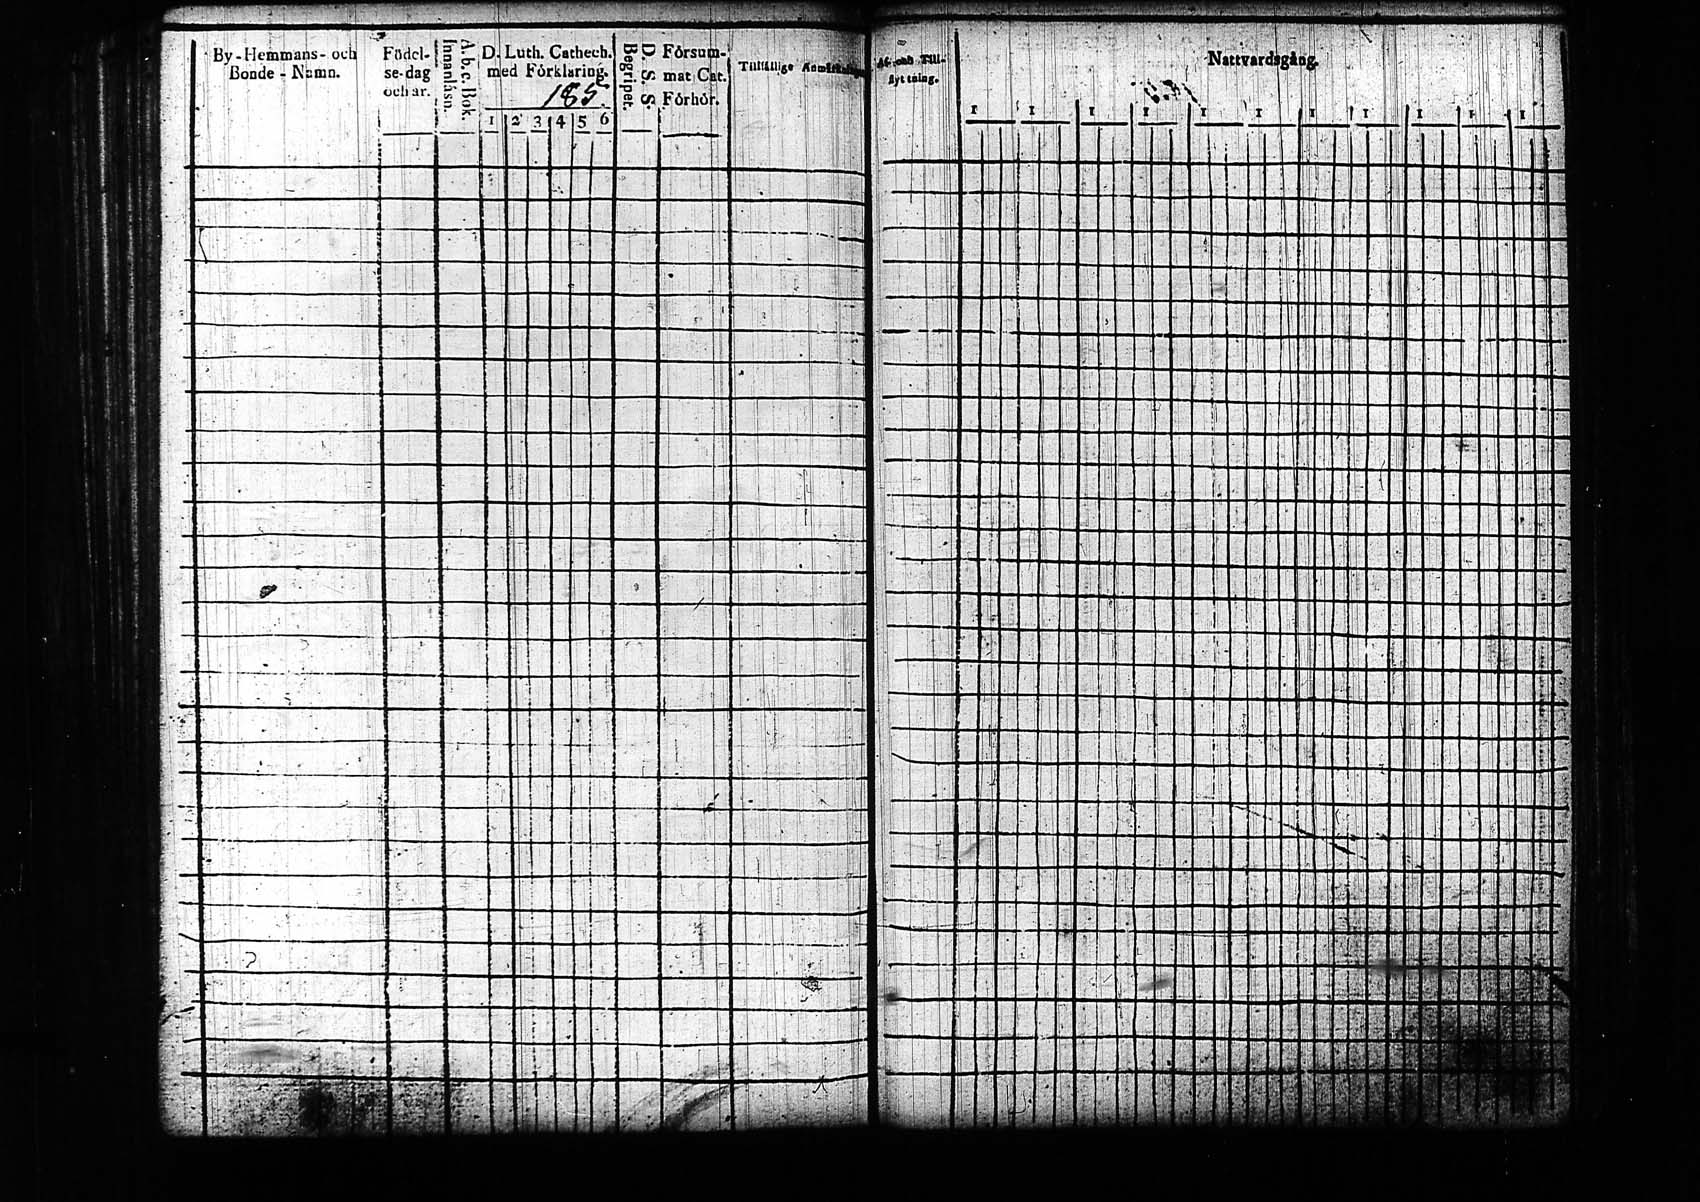 By-Hemmans- och
Bonde-Namn.
Födel-
se-dag
och år.
A. b. c. Bok.
Innanläsn.
D. Luth. Cathech.
med Förklaring.
185
1 2 3 4 5 6
D. S. S.
Begripet.
Försum-
mat Cat.
Förhör.
Tillfällige Anmärkningar
Af- och Till-
flyttning.
Nattvardsgång.
1 1 1 1 1 1 1 1 1 1 1